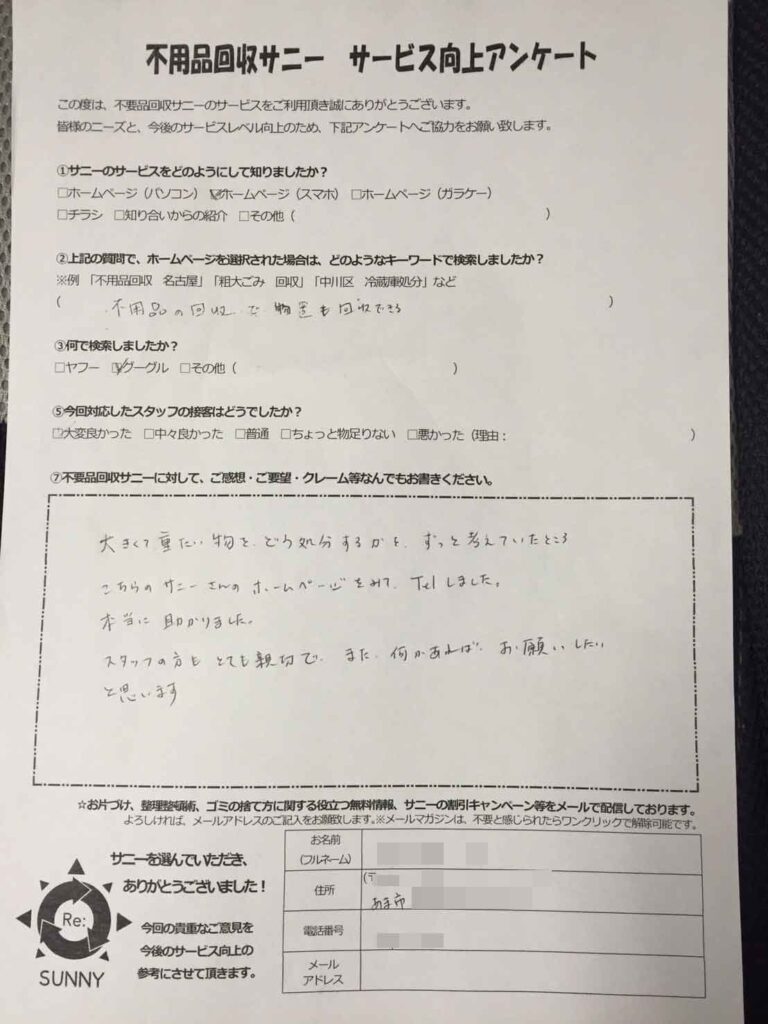 不用品回収サニー　サービス向上アンケート
この度は、不要品回収サニーのサービスをご利用頂き誠にありがとうございます。
皆様のニーズと、今後のサービスレベル向上のため、下記アンケートへご協力をお願い致します。
①サニーのサービスをどのようにして知りましたか？
□ホームページ（パソコン）☑ホームページ（スマホ）□ホームページ（ガラケー）
□チラシ　□知り合いからの紹介　□その他（　　　　）
②上記の質問で、ホームページを選択された場合は、どのようなキーワードで検索しましたか？
※例　「不用品回収　名古屋」「粗大ごみ　回収」「中川区　冷蔵庫処分」など
（　不用品の回収で物置も回収できる　）
③何で検索しましたか？
□ヤフー　☑グーグル　□その他（　　　　）
⑤今回対応したスタッフの接客はどうでしたか？
☑大変良かった　□中々良かった　□普通　□ちょっと物足りない　□悪かった（理由：　　　　）
⑦不要品回収サニーに対して、ご感想・ご要望・クレーム等なんでもお書きください。
大きくて重たい物を、どう処分するかを、ずっと考えていたところ
こちらのサニーさんのホームページをみて、Telしました。
本当に助かりました。
スタッフの方もとても親切で、また、何かあれば、お願いしたい
と思います
☆お片づけ、整理整頓術、ゴミの捨て方に関する役立つ無料情報、サニーの割引キャンペーン等をメールで配信しております。
よろしければ、メールアドレスのご記入をお願致します。※メールマガジンは、不要と感じられたらワンクリックで解除可能です。
サニーを選んでいただき、
ありがとうございました！
今回の貴重なご意見を
今後のサービス向上の
参考にさせて頂きます。
Re:
SUNNY
お名前
（フルネーム）
住所
（〒
あま市
電話番号
メール
アドレス